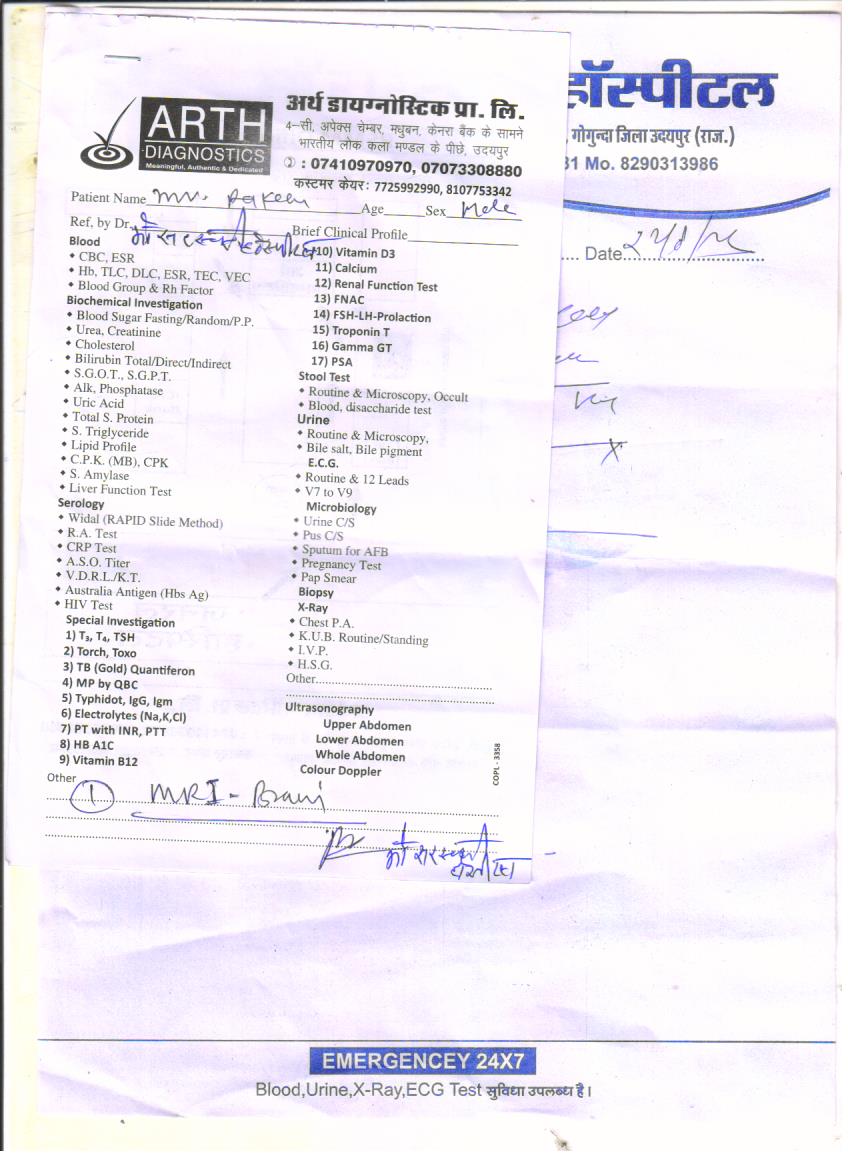 ARTH
DIAGNOSTICS
Meaningful, Authentic & Dedicated
अर्थ डायग्नोस्टिक प्रा. लि.
4–सी, अपेक्स चेम्बर, मधुबन, केनरा बैंक के सामने
भारतीय लोक कला मण्डल के पीछे, उदयपुर
: 07410970970, 07073308880
कस्टमर केयर: 7725992990, 8107753342
हॉस्पीटल
, गोगुन्दा जिला उदयपुर (राज.)
31 Mo. 8290313986
Date
Patient Name Mr. Age Sex Male
Ref, by Dr. Brief Clinical Profile
Blood
• CBC, ESR
• Hb, TLC, DLC, ESR, TEC, VEC
• Blood Group & Rh Factor
Biochemical Investigation
• Blood Sugar Fasting/Random/P.P.
• Urea, Creatinine
• Cholesterol
• Bilirubin Total/Direct/Indirect
• S.G.O.T., S.G.P.T.
• Alk, Phosphatase
• Uric Acid
• Total S. Protein
• S. Triglyceride
• Lipid Profile
• C.P.K. (MB), CPK
• S. Amylase
• Liver Function Test
Serology
• Widal (RAPID Slide Method)
• R.A. Test
• CRP Test
• A.S.O. Titer
• V.D.R.L./K.T.
• Australia Antigen (Hbs Ag)
• HIV Test
Special Investigation
1) T₃, T₄, TSH
2) Torch, Toxo
3) TB (Gold) Quantiferon
4) MP by QBC
5) Typhidot, IgG, Igm
6) Electrolytes (Na,K,Cl)
7) PT with INR, PTT
8) HB A1C
9) Vitamin B12
10) Vitamin D3
11) Calcium
12) Renal Function Test
13) FNAC
14) FSH-LH-Prolaction
15) Troponin T
16) Gamma GT
17) PSA
Stool Test
• Routine & Microscopy, Occult
• Blood, disaccharide test
Urine
• Routine & Microscopy,
• Bile salt, Bile pigment
E.C.G.
• Routine & 12 Leads
• V7 to V9
Microbiology
• Urine C/S
• Pus C/S
• Sputum for AFB
• Pregnancy Test
• Pap Smear
Biopsy
X-Ray
• Chest P.A.
• K.U.B. Routine/Standing
• I.V.P.
• H.S.G.
Other
Ultrasonography
Upper Abdomen
Lower Abdomen
Whole Abdomen
Colour Doppler
COPL - 3358
Other
1 MRI - Brain
EMERGENCEY 24X7
Blood,Urine,X-Ray,ECG Test सुविधा उपलब्ध है।